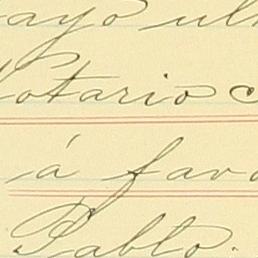 ayo ul
Notario c
á favo
Pablo.